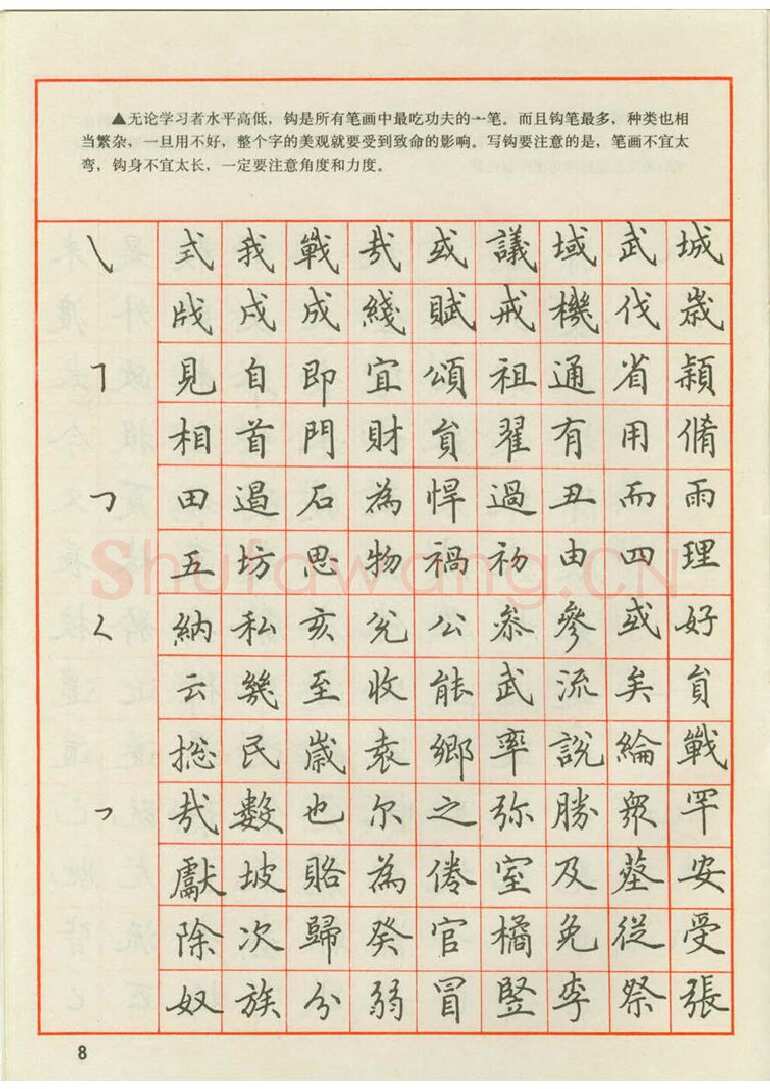 ▲无论学习者水平高低，钩是所有笔画中最吃功夫的一笔。而且钩笔最多，种类也相
当繁杂，一旦用不好，整个字的美观就要受到致命的影响。写钩要注意的是，笔画不宜太
弯，钩身不宜太长，一定要注意角度和力度。
㇏ 式 我 戰 哉 或 議 域 武 城
戍 成 綫 賦 戒 機 伐 歲
㇕ 見 自 即 宜 頌 祖 通 省 穎
相 首 門 財 貟 翟 有 用 脩
㇇ 田 遏 石 為 悍 過 丑 而 雨
五 坊 思 物 禍 初 由 四 理
ㄑ 納 私 亥 兊 公 叅 參 或 好
云 幾 至 收 能 武 流 矣 貟
揔 民 歲 袁 鄉 率 說 綸 戰
㇇ 哉 數 也 尔 之 弥 勝 眾 罕
獻 坡 賂 為 倦 室 及 墓 安
除 次 歸 癸 官 橘 免 從 受
奴 族 分 弱 冒 竪 李 祭 張
Shufawang.CN
8